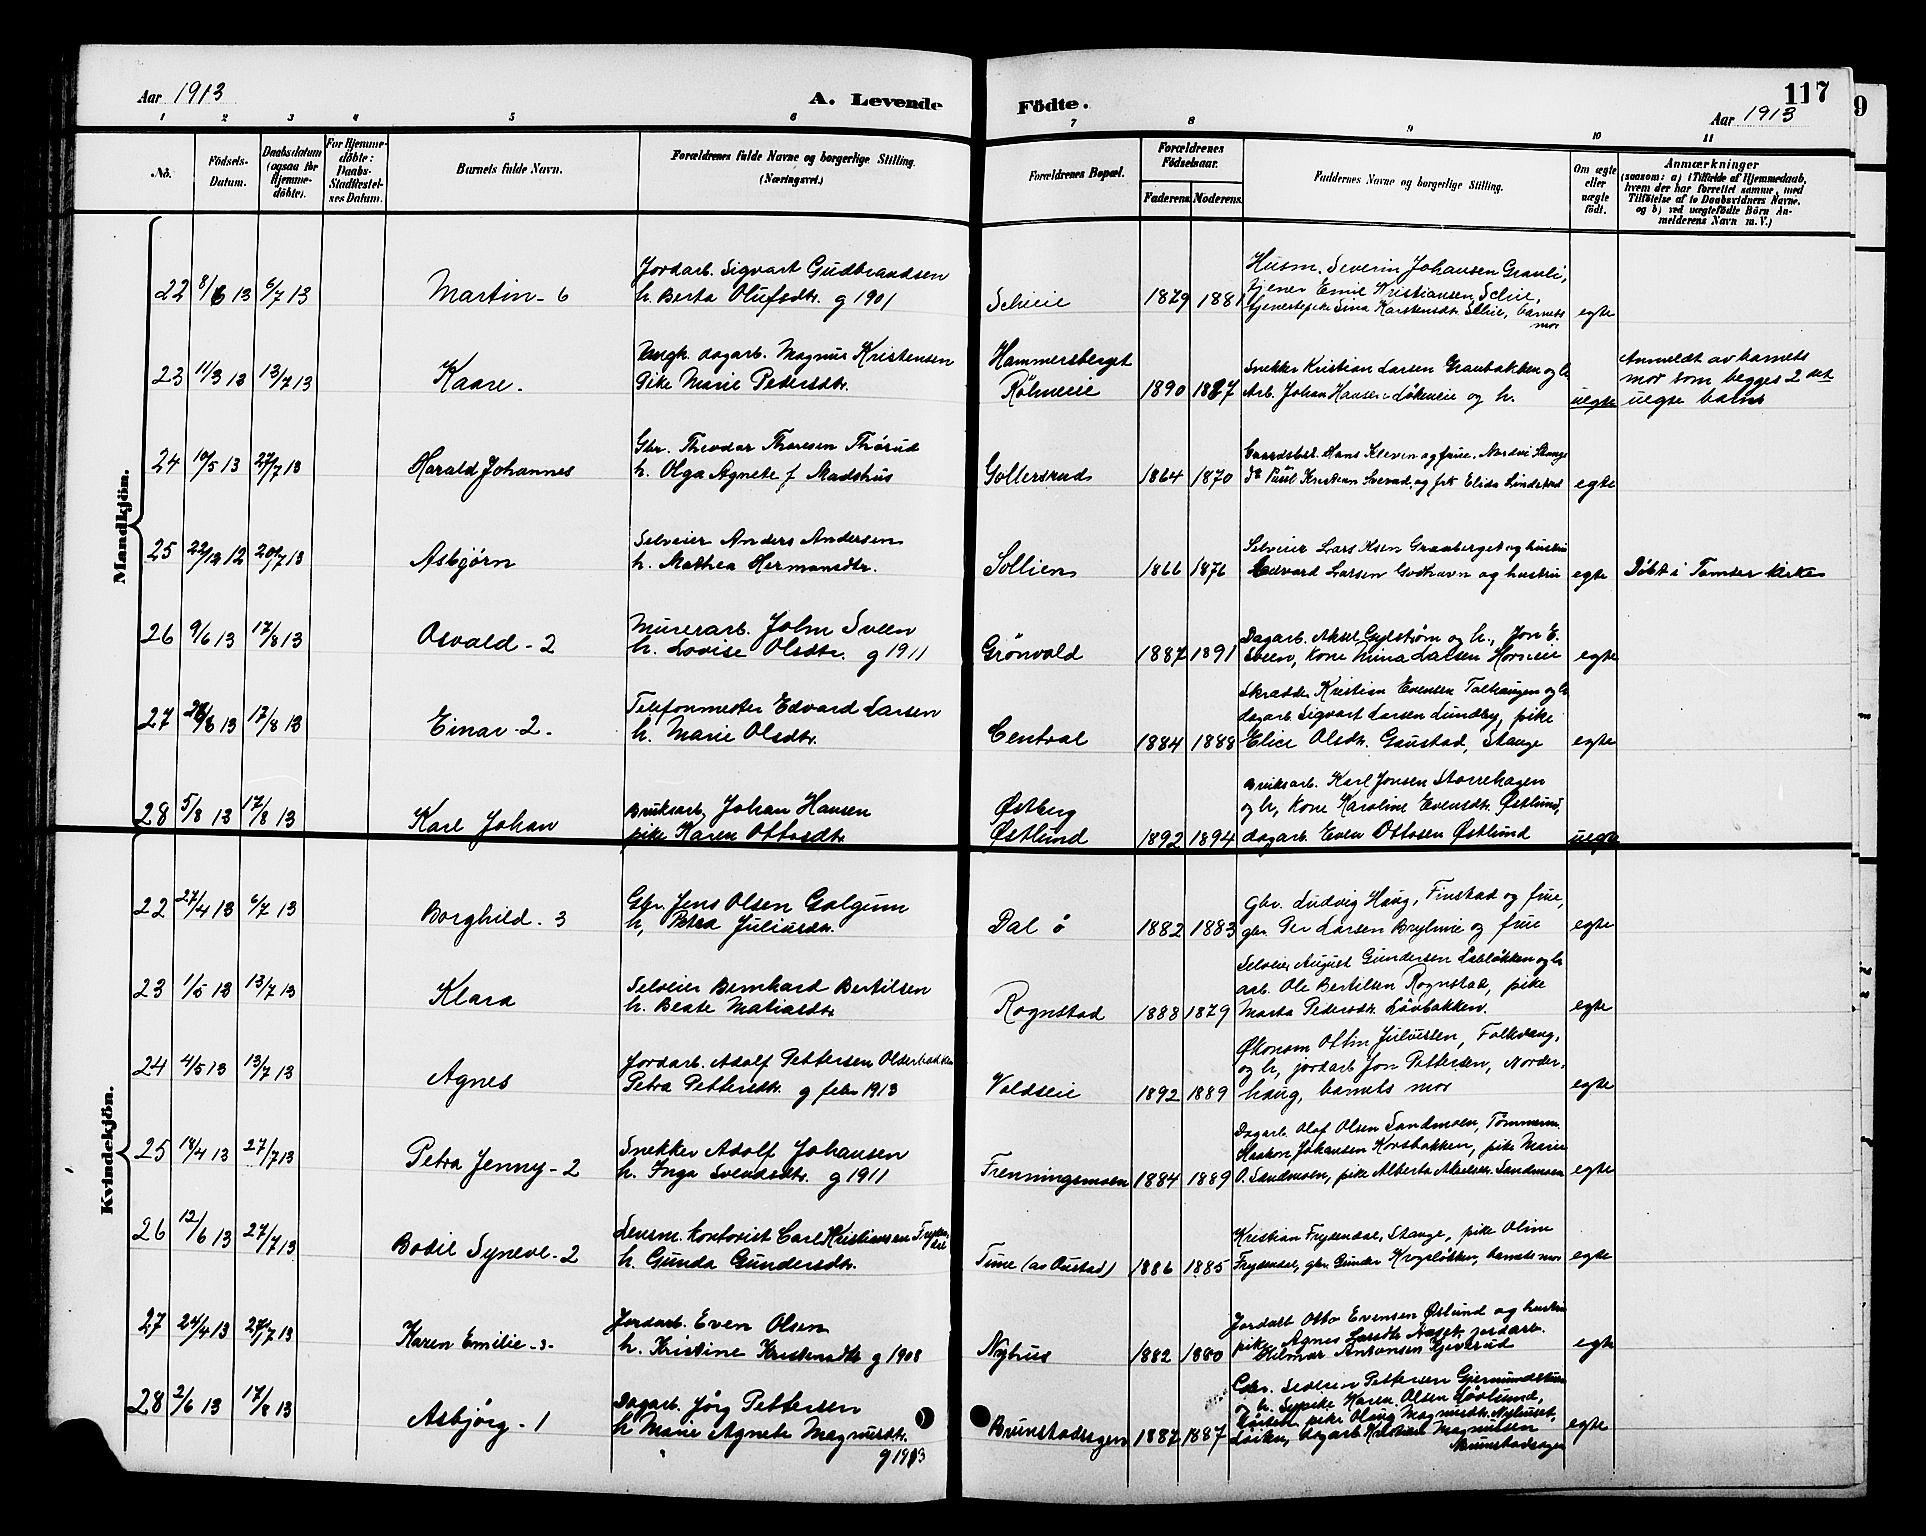 Aar 1913
A. Levende
Födte.
117
Aar 1913
9
1 2 3 4 5 6 7 8 9 10 11
No.
Födsels-
Datum.
Daabsdatum
(ogsaa for
Hjemme-
döbte).
For Hjemme-
döbte:
Daabs-
Stadfæstel-
ses Datum.
Barnets fulde Navn.
Forældrenes fulde Navne og borgerlige Stilling.
(Næringsvei.)
Forældrenes Bopæl.
Forældrenes
Födselsaar.
Faderens. Moderens.
Faddernes Navne og borgerlige Stilling.
Om ægte
eller
uægte
födt.
Anmærkninger
(saasom: a) i Tilfælde af Hjemmedaab,
hvem der har forrettet samme, med
Tilföielse af to Daabsvidners Navne,
og b) ved uægtefödte Börn An-
melderens Navn m. V.)
Mandkjön.
22 8/6 13 6/7 13 Martin - 6
Jordarb. Sigvart Gudbrandsen
h. Berta Olufsdtr. g 1901
1879 1881
Husm. Severin Johansen Granli,
tjener Emil Kristiansen
tjenestepike Sina Karstensdtr. barnets
mor
egte
23 11/3 13 13/7 13 Kaare.
Ungk. dagarb. Magnus Kristensen
Pike Marie Pedersdtr.
Hammersberget
1890 1887
Snekker Kristian Larsen Graubakken og h
Arb. Johan Hansen Løkeneie og h.
uegte
Anmeldt av barnets
mor som begges 2 det
uegte barn
24 10/5 13 27/7 13 Harald Johannes
Gbr. Theodor Thoresen Thørud
h. Olga Agnete f Madshus
Gollersrud
1864 1870
Gaardsbest. Hans Kleven og frue, Nordvi Stange
Paul Kristian og frk Elida Lindstad
egte
25 22/12 12 20/7 13 Asbjørn
Selveier Anders Andersen
h. Mathea Hermansdtr.
Sollien
1866 1876
Selveier Lars Graaberget og hustru
Edvard Larsen Godhavn og hustru
egte
Døbt i Tomter kirke
26 9/6 13 17/8 13 Osvald - 2
Murerarb. John Sveen
h. Lovise Olsdtr. g 1911
Grönvold
1887 1891
Dagarb. Aksel Gylstrøm og h., Jon E.
Sveen, kone Mina Larsen Horneie
egte
27 17/8 13 Einar - 2.
Telefonmester Edvard Larsen
h. Marie Olsdtr.
Central
1884 1888
Skrædder Kristian Evensen Tolhaugen og h
dagarb. Sigvart Larsen Lundby, pike
Elise Olsdtr. Gaustad, Stange
egte
28 5/8 13 17/8 13 Karl Johan
Bruksarb. Johan Hansen
pike Karen Ottosdtr
Østberg
Østlund
1892 1894
Bruksarb. Karl Jonsen Storrehagen
og h, kone Karoline Evensdtr. Østlund,
dagarb. Even Ottosen Østlund
uegte
Kvindekjön.
22 27/4 13 6/7 13 Borghild - 3
Gbr. Jens Olsen Galgum
h, Petra Juliusdtr.
Dal ø
1882 1883
Gbr. Ludvig Haug, Finstad og frue,
gbr. Per Larsen og frue
egte
23 1/5 13 13/7 13 Klara
Selveier Bernhard Bertilsen
h. Beate Matiasdtr
Rognstad
1888 1879
Selveier August Gundersen og h
arb. Ole Bertilsen Rognstad, pike
Marta Pedersdtr. Løvbakken.
egte
24 4/5 13 13/7 13 Agnes
Jordarb. Adolf Pettersen Olderbakken
Petra Pettersdtr. g febr 1913
Voldseie
1892 1889
Økonom Ottin Juliussen, Folkvang,
og h, jordarb Jon Pettersen, Norder-
haug, barnets mor
egte
25 18/4 13 27/7 13 Petra Jenny - 2
Snekker Adolf Johansen
h. Inga Svendsdtr. g 1911
Frenningsmoen
1884 1889
Dagarb. Olof Olsen Sandmoen, Tømmerm.
Haakon Johansen Korsbakken, pike Marie
O. Sandmoen, pike Alberta Akselsdtr. Sandmoen
egte
26 12/6 13 27/7 13 Bodil Synøve - 2
kontorist Carl Kristiansen
h. Gunda Gundersdtr.
Tune (av Oustad)
1886 1885
Kristian Frydendal, Stange, pike Oline
Frydendal, gbr. Gunder Krogsløkken, barnets mor
egte
27 24/4 13 13 Karen Emilie - 3 -
Jordarb. Even Olsen
h. Kristine Kristensdtr g 1908
Nyhus
1882 1880
Jordarb Otto Evensen Østlund og hustru
pike Agnes Larsdtr. jordarb.
Hilmar Antonsen Gjevlrud
egte
28 2/6 13 17/8 13 Asbjørg - 1
Dagarb. Jörg Pettersen
h Marie Agnete Magnusdtr.
g 1913
Brunstadsagen
1887 1887
Gbr. Pettersen Gjermundstuen
og h. Sypike Karen Olsen Løvlund,
pike Olaug Magnusdtr. Nyhuset,
dagarb. Kristian Magnussen
Brunstadsagen
egte